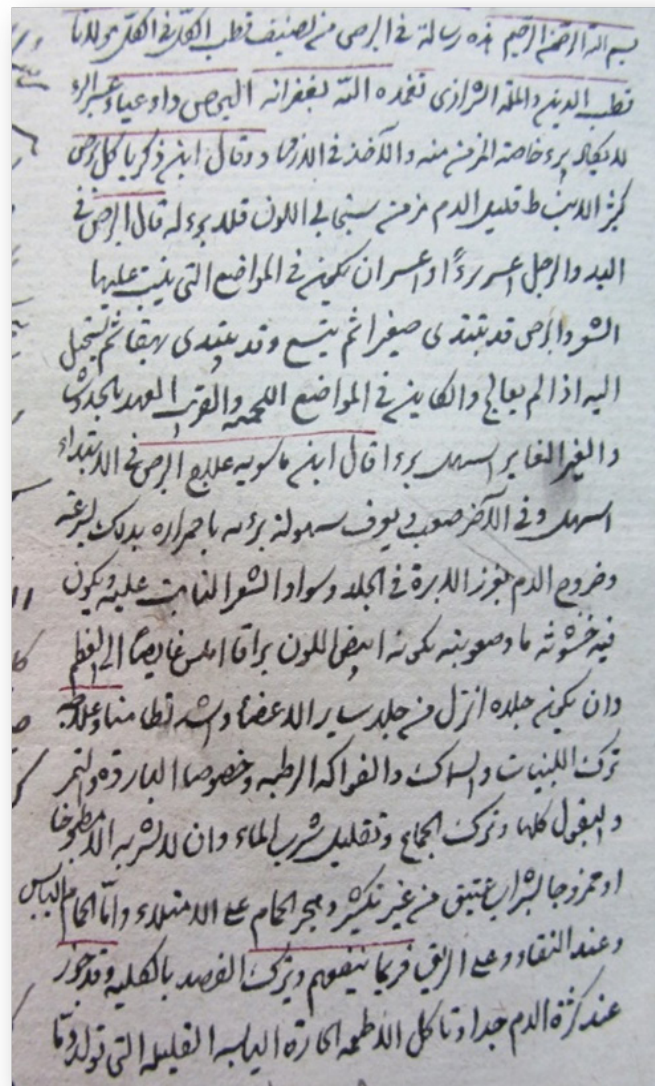 بسم الله الرحمن الرحيم هذه رسالة في البرص من تصنيف قطب الكل في الكل مولانا
قطب الدين والملة الشرازى تغمده الله بغفرانه البرص داء عياء عسر البرء
لا يكاد يبرء خاصة المزمن منه والآخذ في الازدياد وقال ابن زكريا كل برص
كثير قليل الدم مزمن في اللون فلا برء له قال البرص في
اليد والرجل اعسر برءًا واعسر ان يكون في المواضع التي ينبت عليها
الشعر والبرص قد يبتدى صغيرا ثم يتسع وقد يبتدى بهقا ثم يستحيل
اليه اذا لم يعالج والكاين في المواضع اللحمية والقريب العهد بالحدوث
والغير الغاير اسهل برءا قال ابن ماسويه علاج البرص في الابتداء
اسهل وفي الآخر صعب يعرف سهولة برئه باحمراره بدلك بسرعة
وخروج الدم بغرز الابرة في الجلد وسواد الشعر النابت عليه ويكون
فيه خشونة ما وصعوبته بكونه ابيض اللون براقا املس غايصًا الى العظم
وان يكون جلده انزل من جلد ساير الاعضاء واشد تطامنا وعلاجه
ترك اللبنيات والسمك والفواكه الرطبه وخصوصا الباردة والتمر
والبقول كلها وترك الجماع وتقليل شرب الماء وان لا يشربه الا مطبوخا
او ممزوجا بشراب عتيق من غير تكثير وهجر الحمام على الامتلاء واما الحمام اليابس
وعند النقاء وعلى الريق فربما ينفعهم وترك الفصد بالكلية وقد جوز
عند كثرة الدم جدا وتاكل الاطعمه الحارة اليابسه القليله التي تولد دمًا